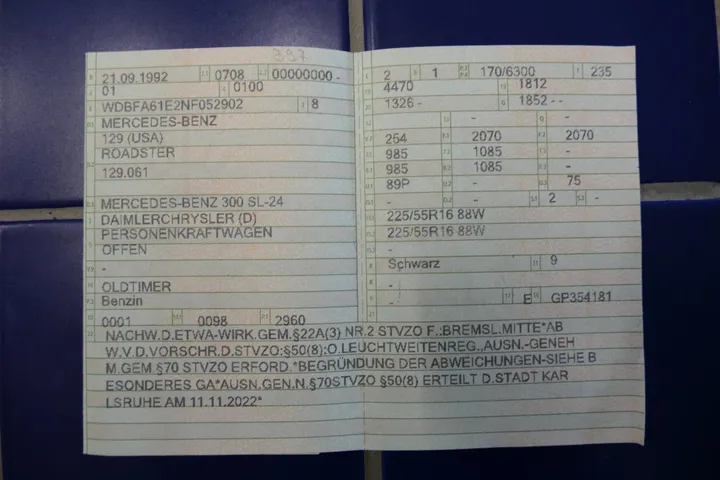 397
B 21.09.1992 2.1 0708 2.2 00000000 -
J 01 4 0100
E WDBFA61E2NF052902 3 8
D.1 MERCEDES-BENZ
129 (USA)
D.2 ROADSTER
129.061
D.3 MERCEDES-BENZ 300 SL-24
2 DAIMLERCHRYSLER (D)
5 PERSONENKRAFTWAGEN
OFFEN
V.9 -
14 OLDTIMER
P.3 Benzin
10 0001 14.1 0098 P.1 2960
L 2 9 1 P.2/P.4 170/6300 T 235
18 4470 19 1812
20 1326 - G 1852 - -
12 - 13 - Q -
V.7 254 F.1 2070 F.2 2070
7.1 985 7.2 1085 7.3 -
8.1 985 8.2 1085 8.3 -
U.1 89P U.2 - U.3 75
O.1 - O.2 - S.1 2 S.2 -
15.1 225/55R16 88W
15.2 225/55R16 88W
15.3 -
R Schwarz 11 9
K -
6 - 17 E 16 GP354181
21
22 NACHW.D.ETWA-WIRK.GEM.§22A(3) NR.2 STVZO F.:BREMSL.MITTE*AB
W.V.D.VORSCHR.D.STVZO:§50(8):O.LEUCHTWEITENREG.,AUSN.-GENEH
M.GEM.§70 STVZO ERFORD.*BEGRÜNDUNG DER ABWEICHUNGEN-SIEHE B
ESONDERES GA*AUSN.GEN.N.§70STVZO §50(8) ERTEILT D.STADT KAR
LSRUHE AM 11.11.2022*